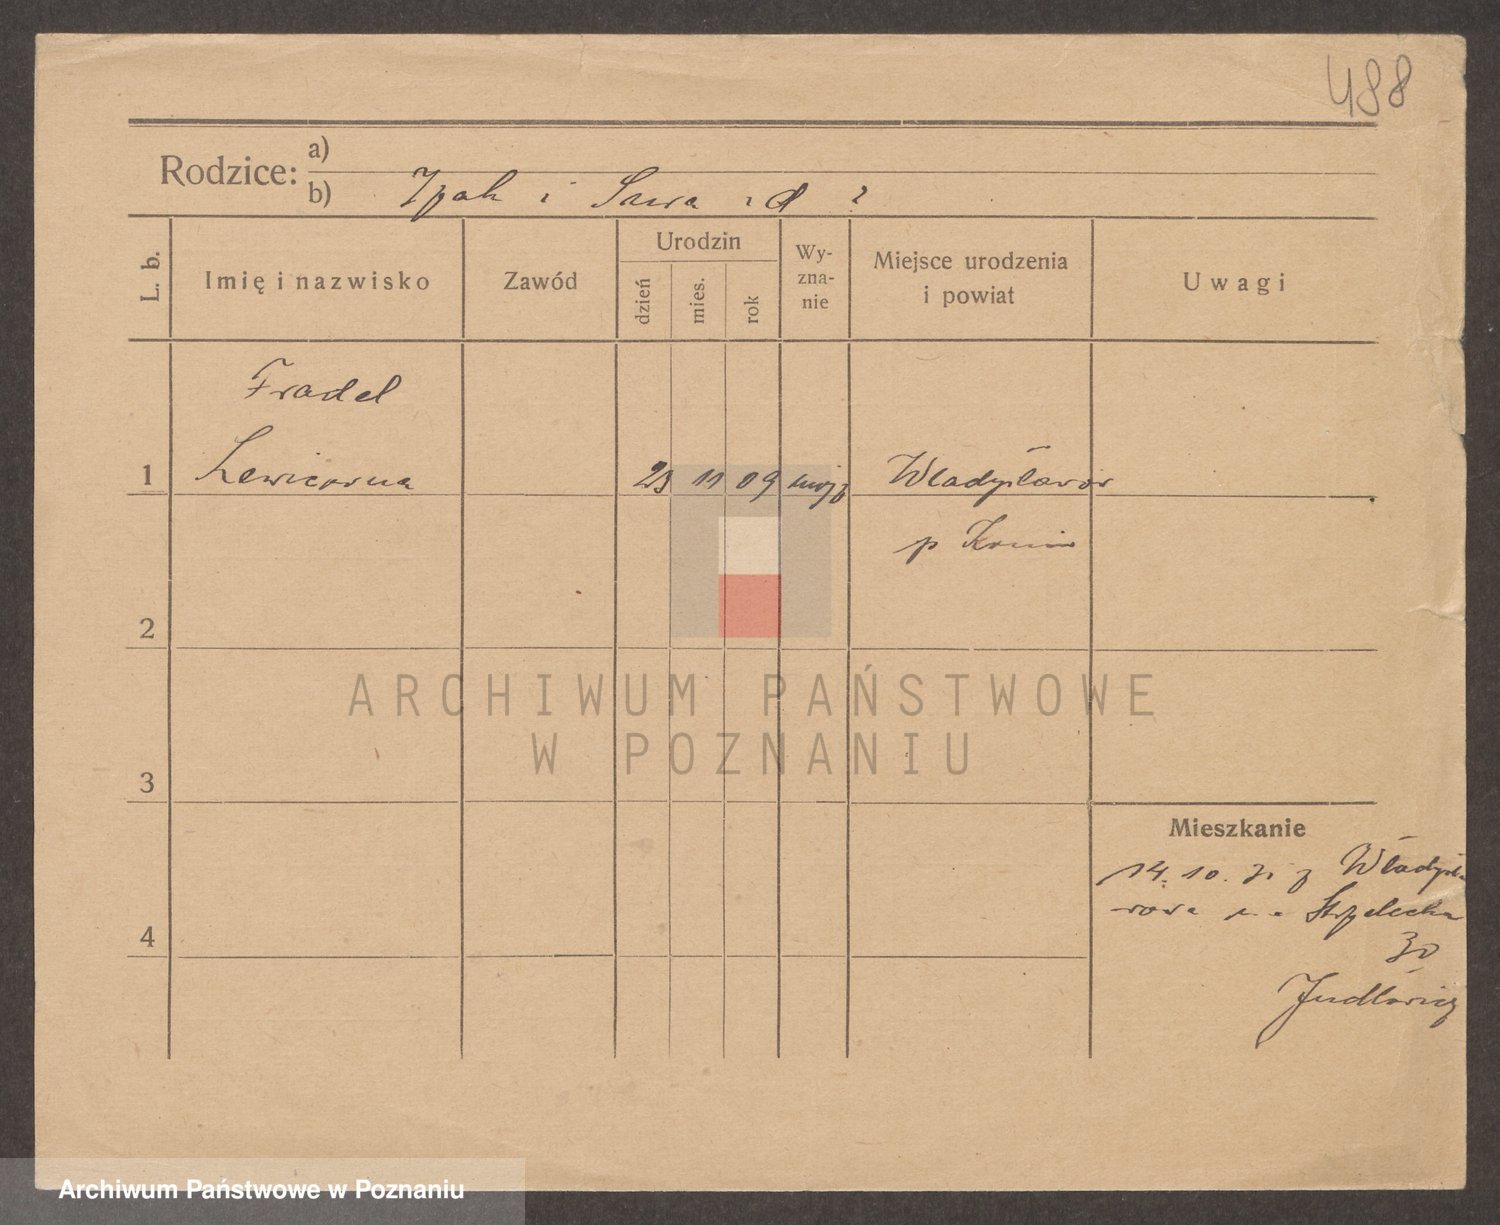 488
Rodzice:
a)
b) Izak i Sura z d ?
L. b.
Imię i nazwisko
Zawód
Urodzin
dzień
mies.
rok
Wy-
zna-
nie
Miejsce urodzenia
i powiat
Uwagi
Fradel
1 Lewicówna 23 11 09 mojż Władysławów
p Konin
2
ARCHIWUM PAŃSTWOWE
W POZNANIU
3
Mieszkanie
14. 10. 31 z Władysła
wowa Strzelecka
4
30
Judłowicz
Archiwum Państwowe w Poznaniu